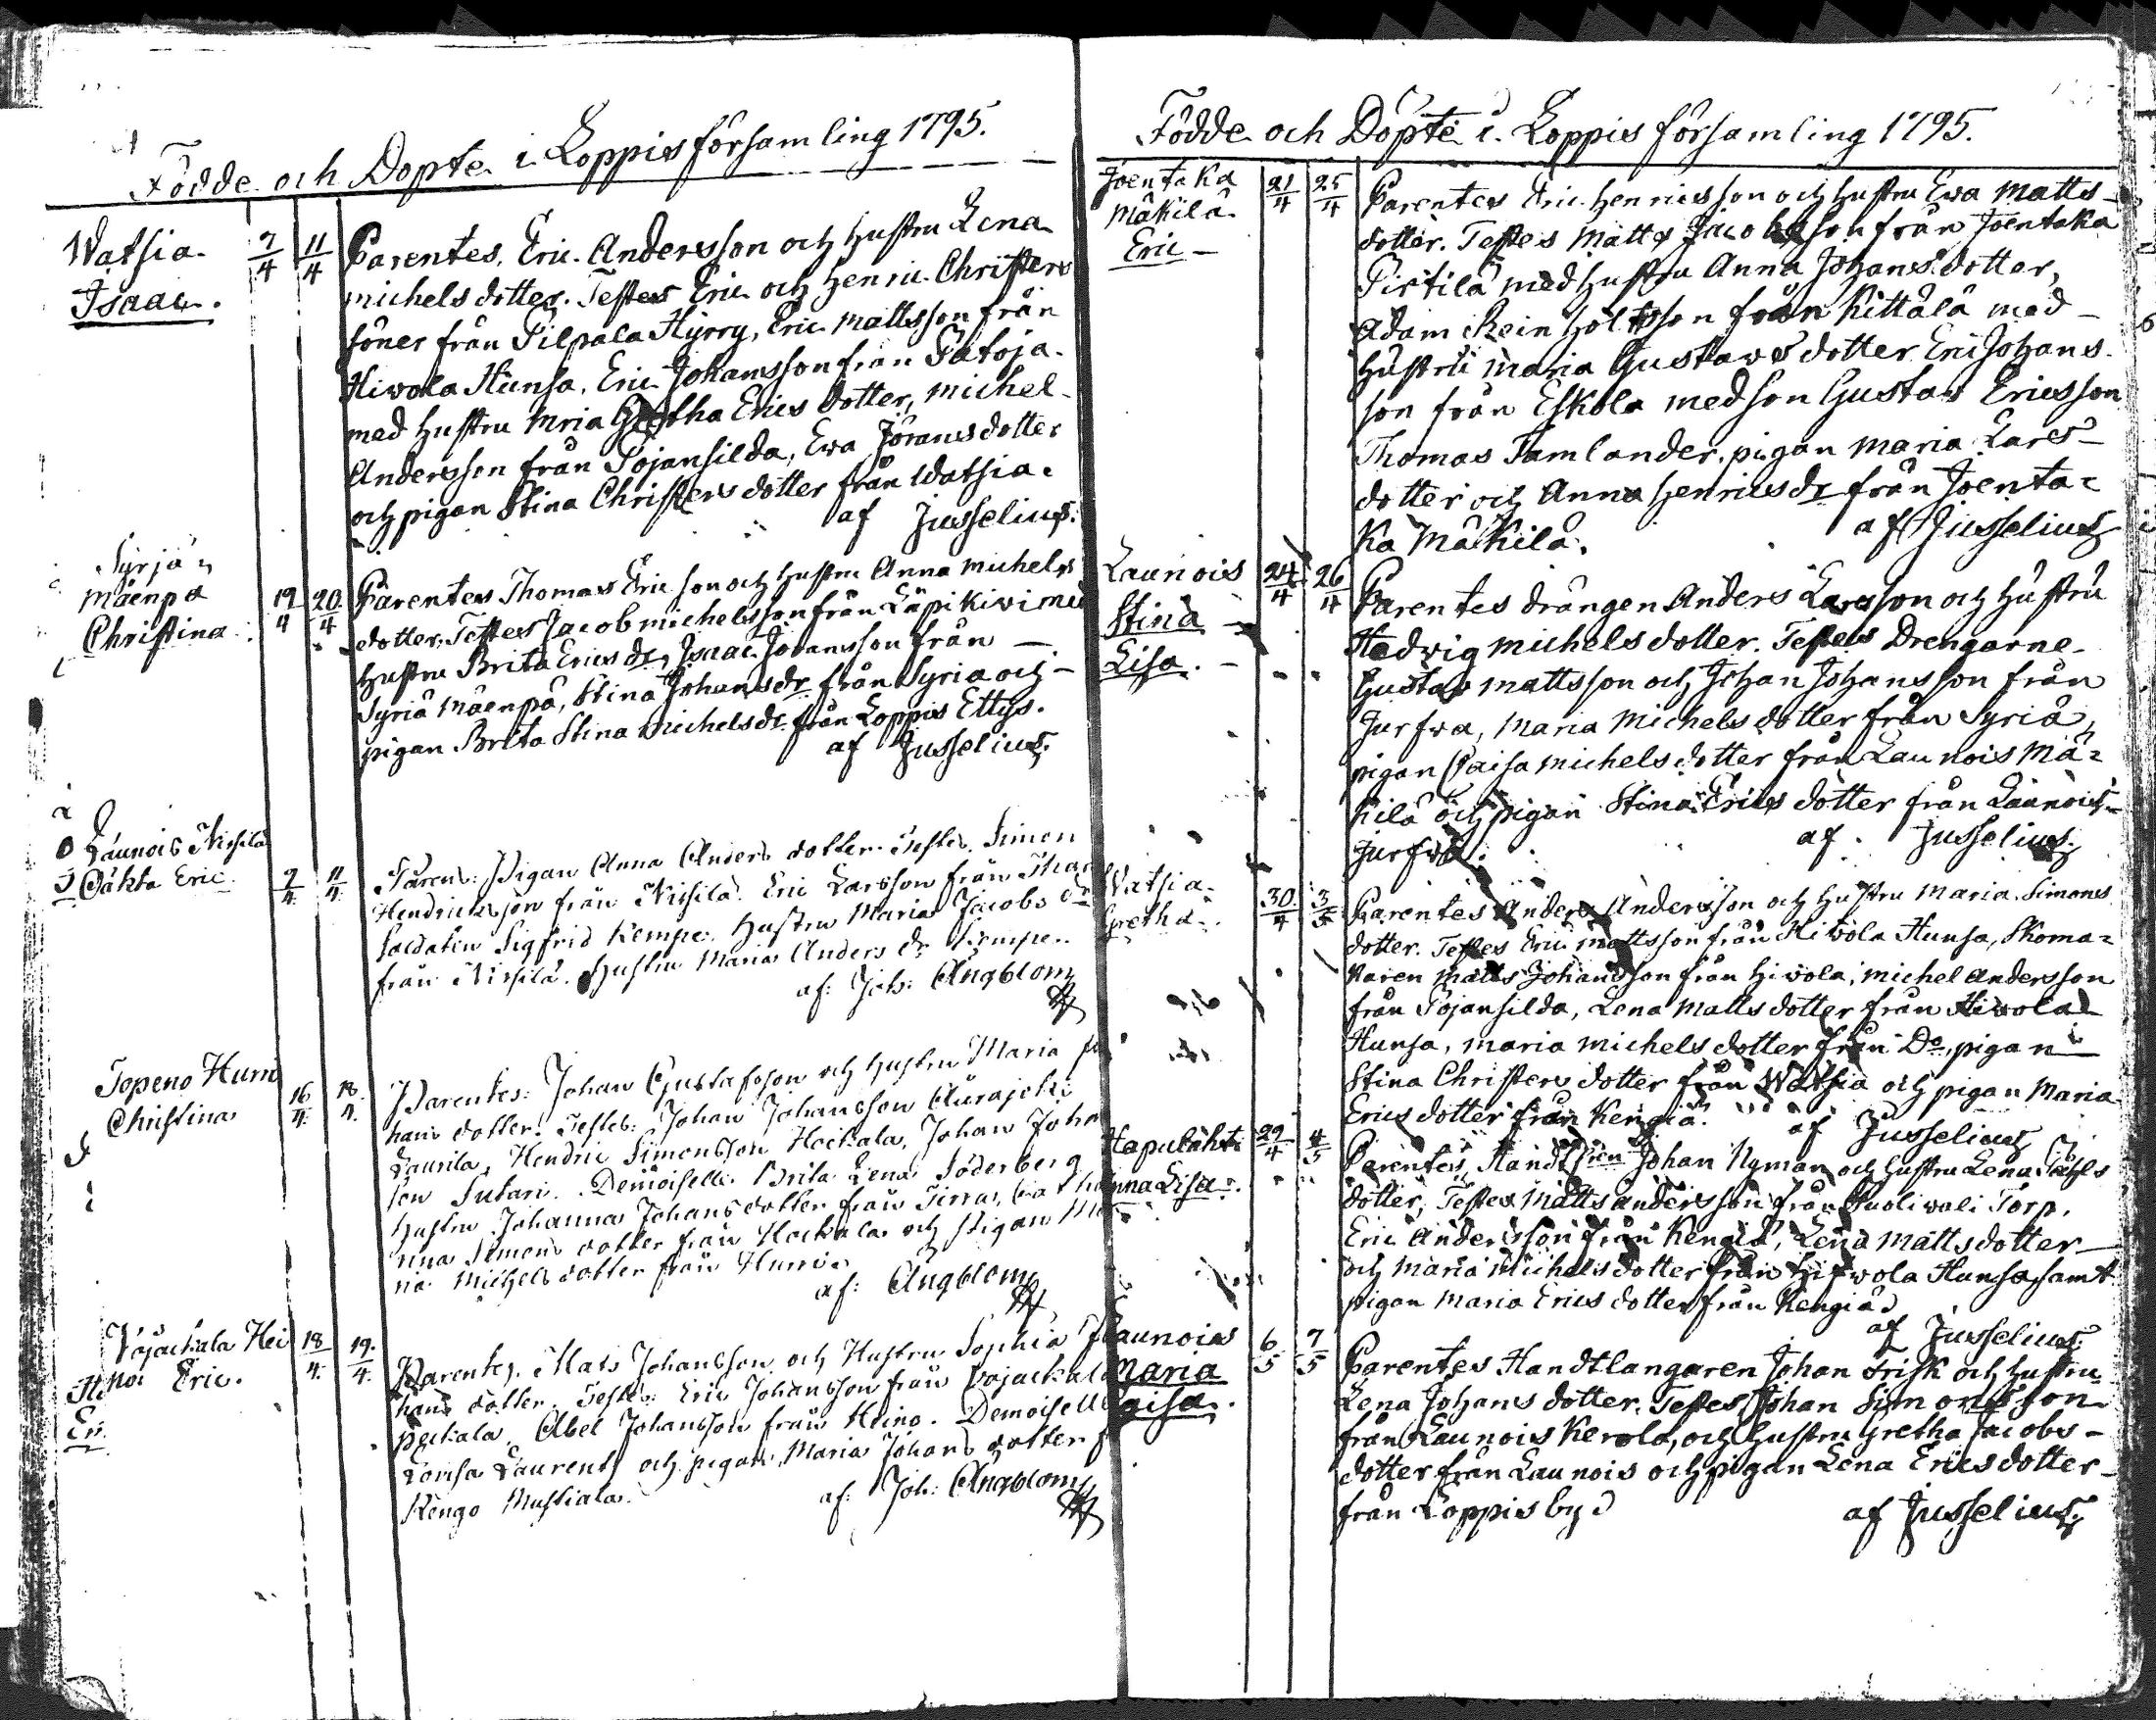 Födde och Döpte i Loppis församling 1795.
Watsia. 7/4 11/4 Parentes, Eric Andersson och hustru Lena
Isaac. michels dotter. Testes Eric och Henric Christers
söner från Pilpala Hyrry, Eric mattsson från
Hiwola Hunsa, Eric Johansson från Patoja
med hustru mria Gretha Erics dotter, michel
Andersson från Pojansilda, Ewa Jöransdotter
och pigan Stina Christers dotter från Watsia.
af Jusselius.
Syrjä
mäenpä 19/4 20/4 Parentes Thomas Ericson och hustru Anna michels
Christina dotter, Testes Jacob michelsson från Läpikivi med
hustru Brita Erics dr, Isaac Johansson från
Syriä mäenpä, Stina Johans dr från Syria och
pigan Brita Stina Michels dr från Loppis Ettys.
af Jusselius.
Launois Nisilä
Oäkta Eric. 7/4 11/4 Parens: Pigan Anna Anders dotter. Testes. Simon
Hendricksson från Nisilä. Eric Larsson från
Soldaten Sigfrid Kempe. Hustru Maria Jacobs dr
från Nisilä. Hustru Maria Anders dr Kempe.
af: Joh: Ångblom
Topeno Hurri 16/4 18/4 Parentes: Johan Gustafsson och hustru Maria Jo
Christina hans dotter. Testes: Johan Johansson Aurajoki
Laurila, Hendric Simonsson Heickala, Johan Johans
son Sutari. Demoiselle Brita Lena Söderberg
Hustru Johanna Johans dotter från Pirra, Catha
rina Simons dotter från Heickala och Pigan Ma
ria Michels dotter från Hurri
af: Ångblom
Vojackala Hei 18/4 19/4 Parentes. Mats Johansson och Hustru Sophia Jo
noi Eric. hans dotter. Testes: Eric Johansson från Vojackala
Peckala, Abel Johansson från Heino. Demoiselle
Lovisa Laurent och pigan Maria Johans dotter f
Rengo Mustiala.
af: Joh: Ångblom
Födde och Döpte i Loppis församling 1795.
Joentaka 21/4 25/4 Parentes Eric Henricsson och hustru Ewa Matts-
Mäkilä dotter. Testes Matts Jacobsson från Joentaka
Eric Pirtilä med hustru Anna Johans dotter,
Adam Reinholdsson från Kittälä med
hustru Maria Gustaws dotter Eric Johans
son från Eskola med son Gustav Ericsson
Thomas Tamlander, pigan Maria Lars-
dotter och Anna Henrics dr från Joenta-
ka Mäkilä. af Jusselius
Launois 24/4 26/4 Parentes drängen Anders Larsson och Hustru
Stina Hedwig Michels dotter. Testes Drengarne
Lisa. Gustav mattsson och Johan Johansson från
Jurfwa, Maria Michels dotter från Syriä,
pigan Caisa michels dotter från Launois Mä-
kilä och pigan Stina Erics dotter från Launois
Jurfwa. af Jusselius.
Watsia 30/4 3/5 Parentes Anders Andersson och hustru Maria Simons
Gretha. dotter. Testes Eric mattsson från Hiwola Hunsa, Skoma-
karen Matts Johansson från Hiwola, michel Andersson
från Pojansilda, Lena Matts dotter från Hiwola
Hunsa, maria michels dotter från Do, pigan
Stina Christers dotter från Watsia och pigan Maria
Erics dotter från Kengiä. af Jusselius
Hapulähti 29/4 4/5 Parentes, Johan Nyman och hustru Lena
Anna Lisa. dotter, Testes Matts andersson från Puoliwali Torp.
Eric Andersson från Kengiä, Lena Matts dotter
och Maria Michels dotter från Hifwola Hunsa, samt
pigan Maria Erics dotter från Kengiä
af Jusselius.
Launois 6/5 7/5 Parentes Handtlangaren Johan Frisk och hustru
Maria Lena Johans dotter. Testes Johan Simonsson
Caisa. från Launois Kerola, och hustru Gretha Jacobs-
dotter från Launois och pigan Lena Erics dotter
från Loppis by af Jusselius.